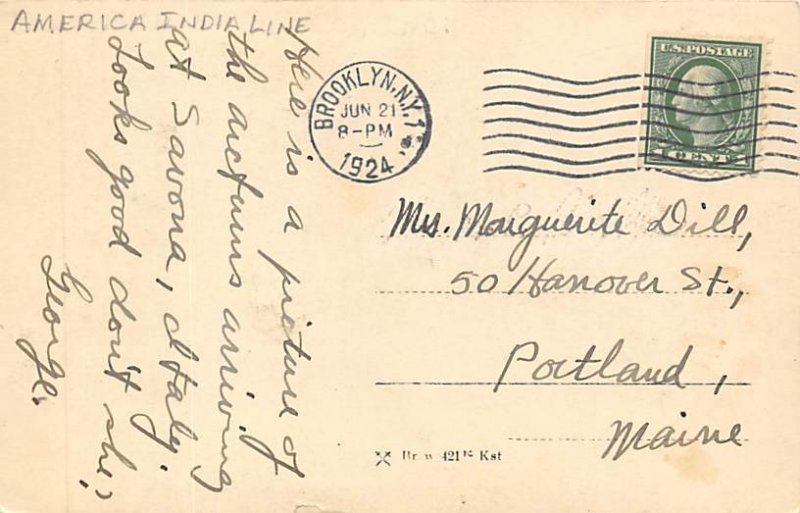 AMERICA INDIA LINE
Here is a picture of
the arcturus arriving
at Savona, Italy.
Looks good don't she?
George.
BROOKLYN, N.Y. 1
JUN 21
8-PM
1924
U.S. POSTAGE
1 CENT 1
Mrs. Marguerite Dill,
50 Hanover St.,
Portland,
Maine
Kst